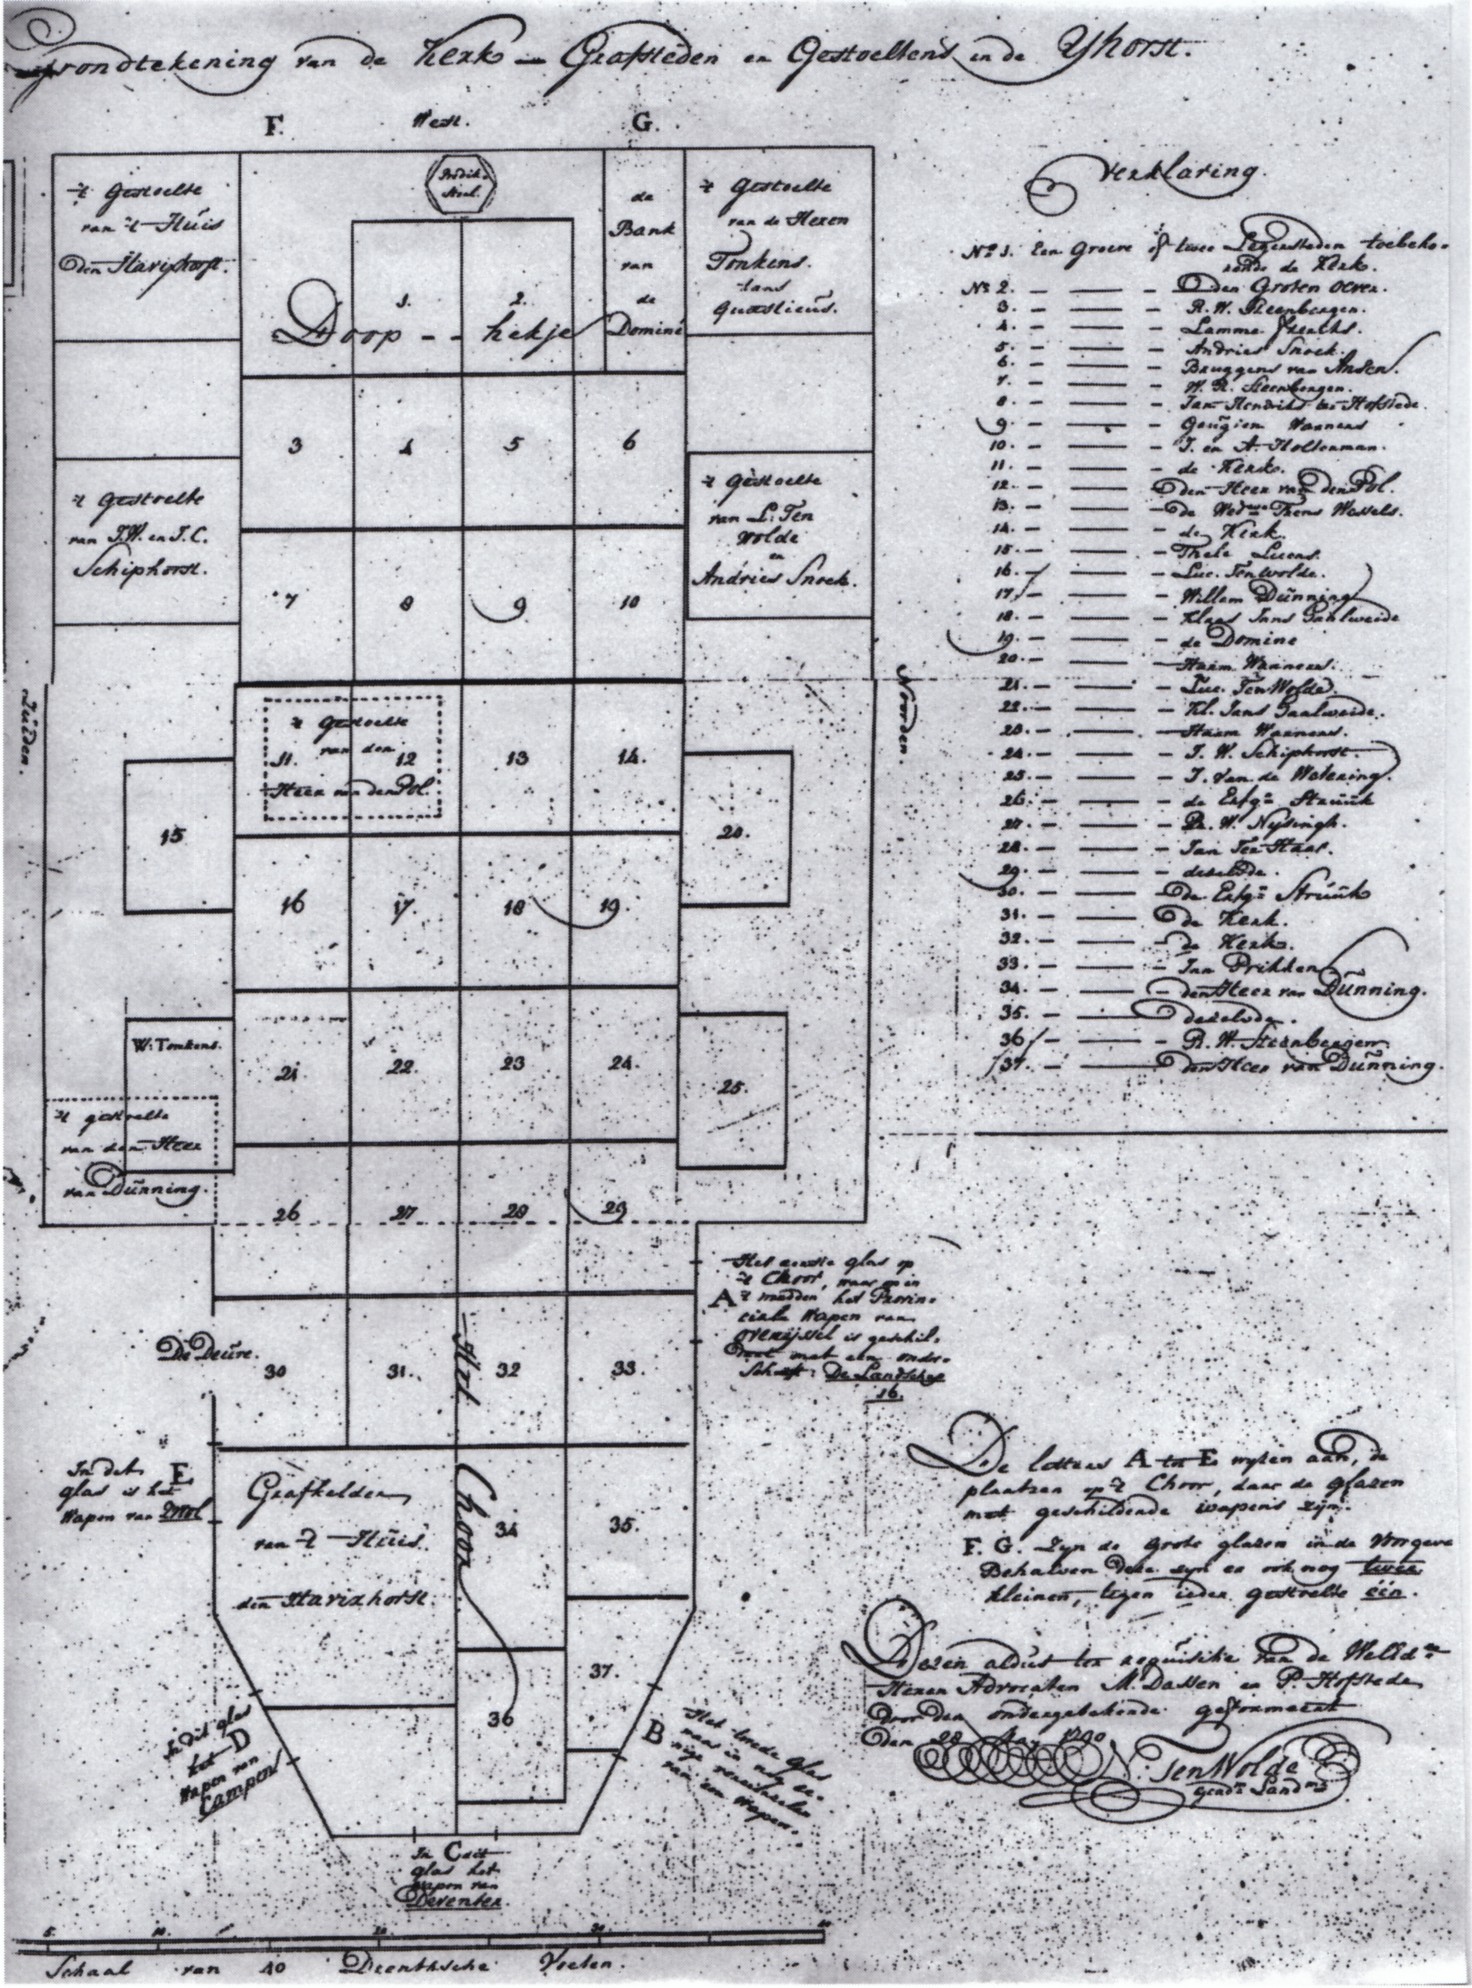 Grondtekening van de Kerk - Grafsteden en Gestoeltens in de Yhorst.
F. West. G.
Predik-
Stoel.
't Gestoelte
van 't Huis
Den Havixhorst.
de
Bank
van
de
Dominé
't Gestoelte
van de Heren
Tonkens.
tans
Quastieus.
1. 2.
Doop - - hekje
3 4 5 6
't Gestoelte
van J.W. en J.C.
Schiphorst.
't Gestoelte
van L. Ten
Wolde
en
Andries Snoek.
7 8 9 10
Zuiden.
Noorden.
't Gestoelte
van den
11. 12 13 14.
Heer van den Pol.
15 20.
16 17. 18 19.
W. Tonkens.
21 22. 23 24. 25.
't gestoelte
van den Heer
van Dünning.
26 27 28 29
Het eerste glas op
't Choor, waar op in
A 't midden het Provin-
ciale Wapen van
Overijssel is geschil-
dert met een onder-
Schrift: De Landschap
16.
De Deure.
30 31. 32 33.
Het Choor
In det E
glas is het
Wapen van Zwol
Grafkelder
van 't Huis
den Havixhorst.
34 35.
36 37.
In dit glas
het D
Wapen van
Campen
B Het twede glas
waar in nog ee-
nige
van een Wapen.
In C dit
glas het
Wapen van
Deventer.
5 10 20 30 40
Schaal van 40 Drenthsche Voeten.
Verklaring.
No 1. Een Groeve of twee Legersteden toebeho-
rende de Kerk.
No 2. - — - Den Groten Oever.
3. - — - R. W. Steenbergen.
4. - — - Lamme
5. - — - Andries Snoek.
6. - — - Bruggens van Ansen.
7. - — - W. R. Steenbergen.
8. - — - Jan Hendriks ter Hofstede.
9. - — - Geugien Wanners
10. - — - J. en A. Holterman.
11. - — - de Kerk.
12. - — - Den Heer van den Pol.
13. - — - de Wedwe Thens Wessels.
14. - — - de Kerk.
15. - — - Thele Lucas.
16. - — - Luc. Ten Wolde.
17. - — - Willem Dünning
18. - — - Klaas Jans Paalweide
19. - — - de Domine
20. - — - Harm Wanners.
21. - — - Luc. Ten Wolde.
22. - — - Kl. Jans Paalweide.
23. - — - Harm Wanners.
24. - — - J. W. Schiphorst
25. - — - J. van de Wetering.
26. - — - de Erfgn Struuk
27. - — - R. W. Nysingh.
28. - — - Jan Ter Haar.
29. - — - dezelvde.
30. - — - De Erfgn Struuk
31. - — - De Kerk.
32. - — - de Kerk.
33. - — - Jan Prikken
34. - — - den Heer van Dünning.
35. - — - Dezelvde.
36. - — - R. W. Steenbergen.
37. - — - Den Heer van Dünning.
De letters A tot E wyzen aan, de
plaatzen op 't Choor, daar de glazen
met geschilderde wapens zijn.
F. G. Zyn de grote glazen in de Voorgevel
Behalven deze zyn er ook nog twee
kleinen, tegen ieder gestoelte één.
Dezen aldus ter requisitie van de WelEdele
Heren Advocaten M. Dassen en P. Hofstede
Door den ondergetekende geformeert
Den 28 May
N. Ten Wolde